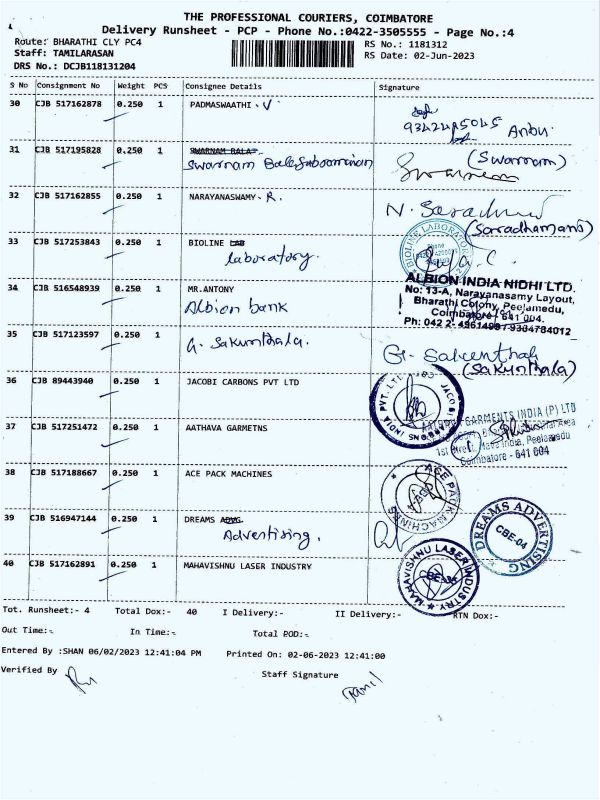 THE PROFESSIONAL COURIERS, COIMBATORE
Delivery Runsheet - PCP - Phone No.:0422-3505555 - Page No.:4
Route: BHARATHI CLY PC4
RS No.: 1181312
Staff: TAMILARASAN
RS Date: 02-Jun-2023
DRS No.: DCJB118131204
S No Consignment No Weight PCS Consignee Details Signature
30 CJB 517162878 0.250 1 PADMASWAATHI. V
Anbu
31 CJB 517195828 0.250 1 SWARNAM BALA
Swarnam Balasubramanian
(Swarnam)
32 CJB 517162855 0.250 1 NARAYANASWAMY. R.
(Saradhamani)
33 CJB 517253843 0.250 1 BIOLINE LAB
laboratory.
BIOLINE LABORATORY
34 CJB 516548939 0.250 1 MR.ANTONY
Albion bank
ALBION INDIA NIDHI LTD.
No: 13-A, Narayanasamy Layout,
Bharathi Colony, Peelamedu,
Coimbatore - 641 004.
35 CJB 517123597 0.250 1
G. Sakunthala.
(Sakunthala)
36 CJB 89443940 0.250 1 JACOBI CARBONS PVT LTD
37 CJB 517251472 0.250 1 AATHAVA GARMETNS
GARMENTS INDIA (P) LTD
Peelamedu
Coimbatore - 641 004
38 CJB 517188667 0.250 1 ACE PACK MACHINES
ACE PACK MACHINES
39 CJB 516947144 0.250 1 DREAMS ADVG
Advertising.
DREAMS ADVERTISING
CBE-04
40 CJB 517162891 0.250 1 MAHAVISHNU LASER INDUSTRY
MAHAVISHNU LASER INDUSTRY
Tot. Runsheet:- 4 Total Dox:- 40 I Delivery:- II Delivery:- RTN Dox:-
Out Time:- In Time:- Total POD:-
Entered By :SHAN 06/02/2023 12:41:04 PM Printed On: 02-06-2023 12:41:00
Verified By Staff Signature
Tamil